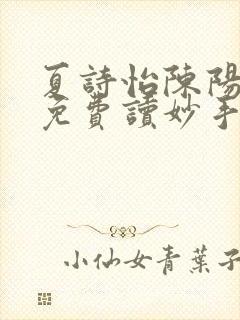 夏詩怡陳陽
免費讀妙手
小仙女青葉子